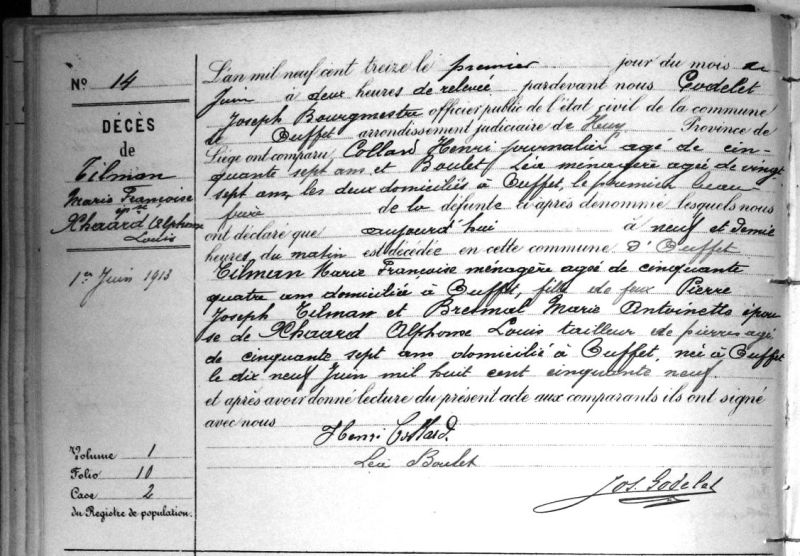 No 14
DÉCÈS
de
Tilman
Marie Françoise
Xhaard Alphonse
Louis
1er Juin 1913
Volume 1
Folio 10
Case 2
du Registre de population.
L'an mil neuf cent treize le premier jour du mois de
Juin à deux heures de relevée pardevant nous Godelet
Joseph Bourgmestre officier public de l'état civil de la commune
de Ouffet arrondissement judiciaire de Huy Province de
Liége ont comparu Collard Henri journalier agé de cin-
quante sept ans et Boulet Léa ménagère agée de vingt
sept ans, les deux domiciliés à Ouffet, le premier beau
frère de la défunte ci après dénommé lesquels nous
ont déclaré que aujourd'hui à neuf et demie
heures du matin est décédée en cette commune d'Ouffet
Tilman Marie Françoise ménagère agée de cinquante
quatre ans domiciliée à Ouffet, fille de feux Pierre
Joseph Tilman et Bresmal Marie Antoinette épou-
se de Xhaard Alphonse Louis tailleur de pierres agé
de cinquante sept ans domicilié à Ouffet, née à Ouffet
le dix neuf Juin mil huit cent cinquante neuf.
et après avoir donné lecture du présent acte aux comparants ils ont signé
avec nous
Henri Collard.
Léa Boulet
Jos. Godelet